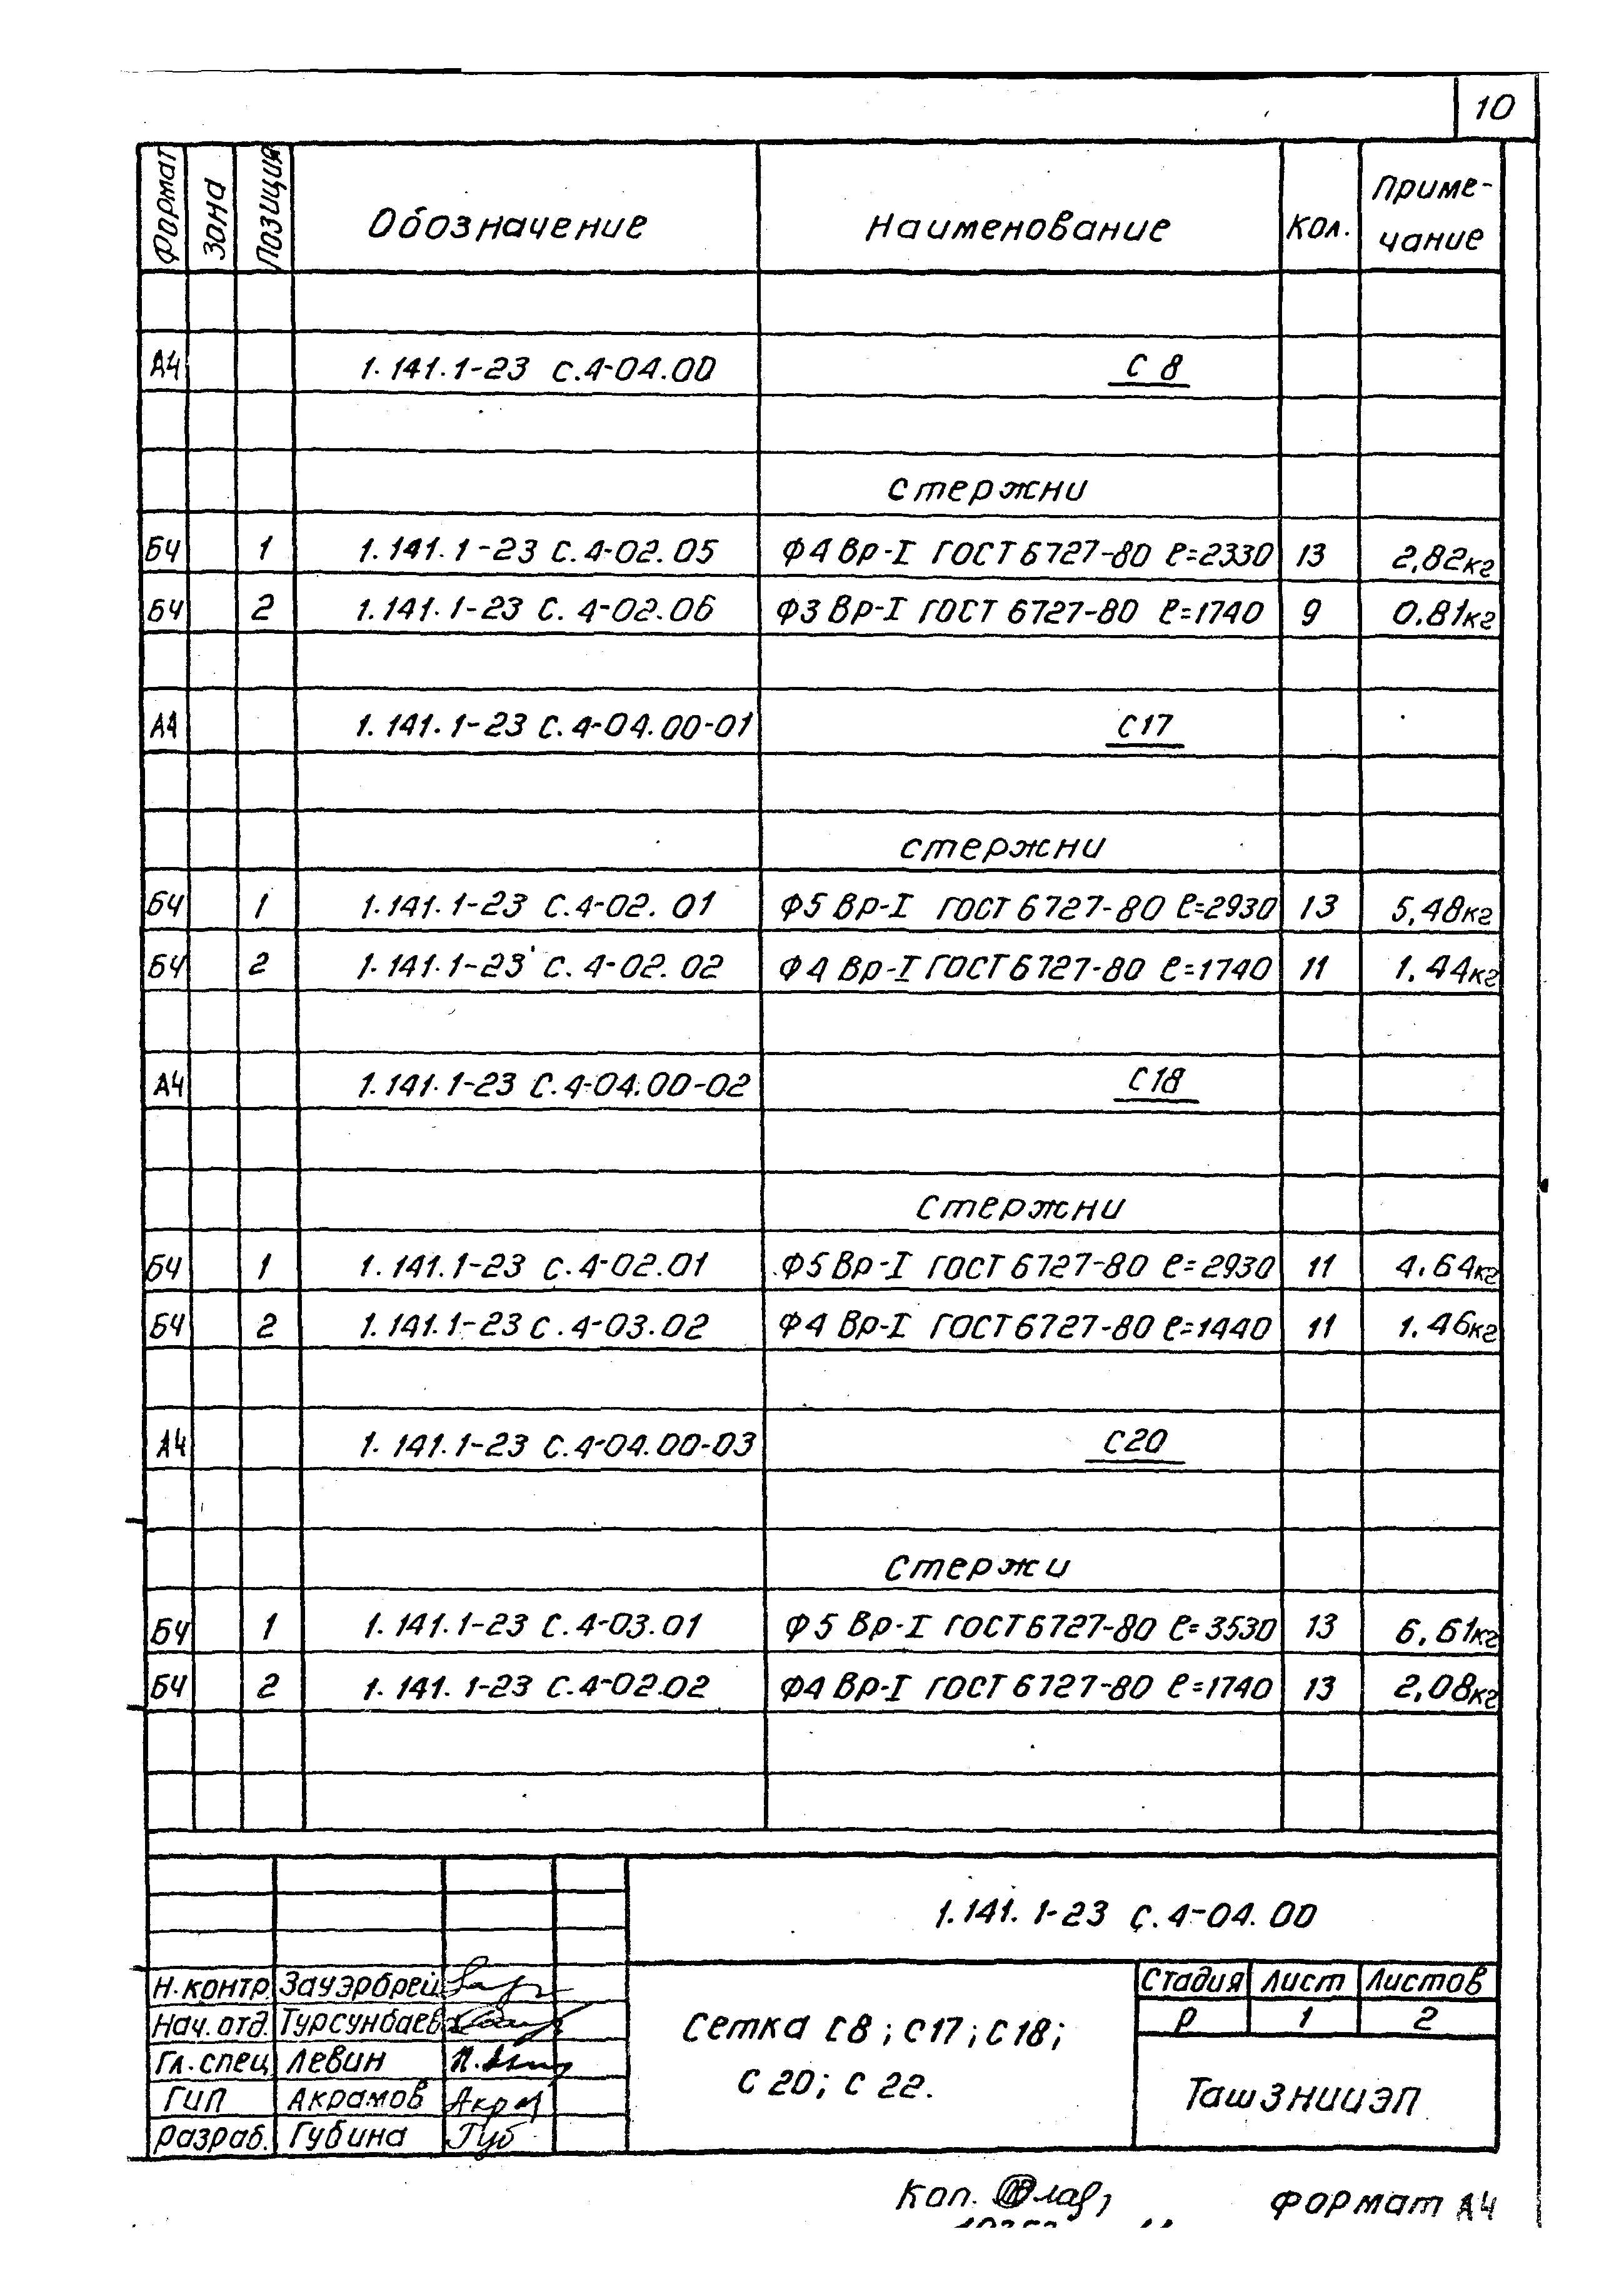 10
Формат Зона Позиция Обозначение Наименование Кол. Приме-
чание
А4 1.141.1-23 С.4-04.00 С 8
стержни
БЧ 1 1.141.1-23 С.4-02.05 Ф4 Вр-I ГОСТ 6727-80 ℓ=2330 13 2,82кг
БЧ 2 1.141.1-23 С.4-02.06 Ф3 Вр-I ГОСТ 6727-80 ℓ=1740 9 0.81кг
А4 1.141.1-23 С.4-04.00-01 С17
стержни
БЧ 1 1.141.1-23 С.4-02.01 Ф5 Вр-I ГОСТ 6727-80 ℓ=2930 13 5,48кг
БЧ 2 1.141.1-23 С.4-02.02 Ф4 Вр-I ГОСТ 6727-80 ℓ=1740 11 1.44кг
А4 1.141.1-23 С.4-04.00-02 С18
Стержни
БЧ 1 1.141.1-23 С.4-02.01 Ф5 Вр-I ГОСТ 6727-80 ℓ=2930 11 4.64кг
БЧ 2 1.141.1-23 С.4-03.02 Ф4 Вр-I ГОСТ 6727-80 ℓ=1440 11 1.46кг
А4 1.141.1-23 С.4-04.00-03 С20
Стержи
БЧ 1 1.141.1-23 С.4-03.01 Ф5 Вр-I ГОСТ 6727-80 ℓ=3530 13 6,61кг
БЧ 2 1.141.1-23 С.4-02.02 Ф4 Вр-I ГОСТ 6727-80 ℓ=1740 13 2,08кг
1.141.1-23 С.4-04.00
Н.контр. Зауэрбрей
Нач.отд. Турсунбаев
Гл.спец Левин
ГИП Акрамов Акрам
разраб. Губина Губ
Сетка С8; С17; С18;
С 20; С 22.
Стадия Лист Листов
Р 1 2
ТашЗНИИЭП
Коп. Формат А4